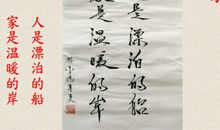 是漂泊的船
是温暖的岸
人是漂泊的船
家是温暖的岸